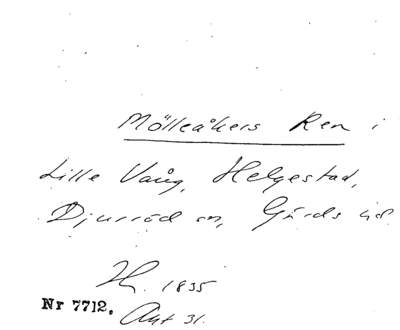 Mölleåkers Ren i
Lille Vång, Helgestad,
Djurröd sn, Gärds hd.
1835
Nr 7712. Akt 31.